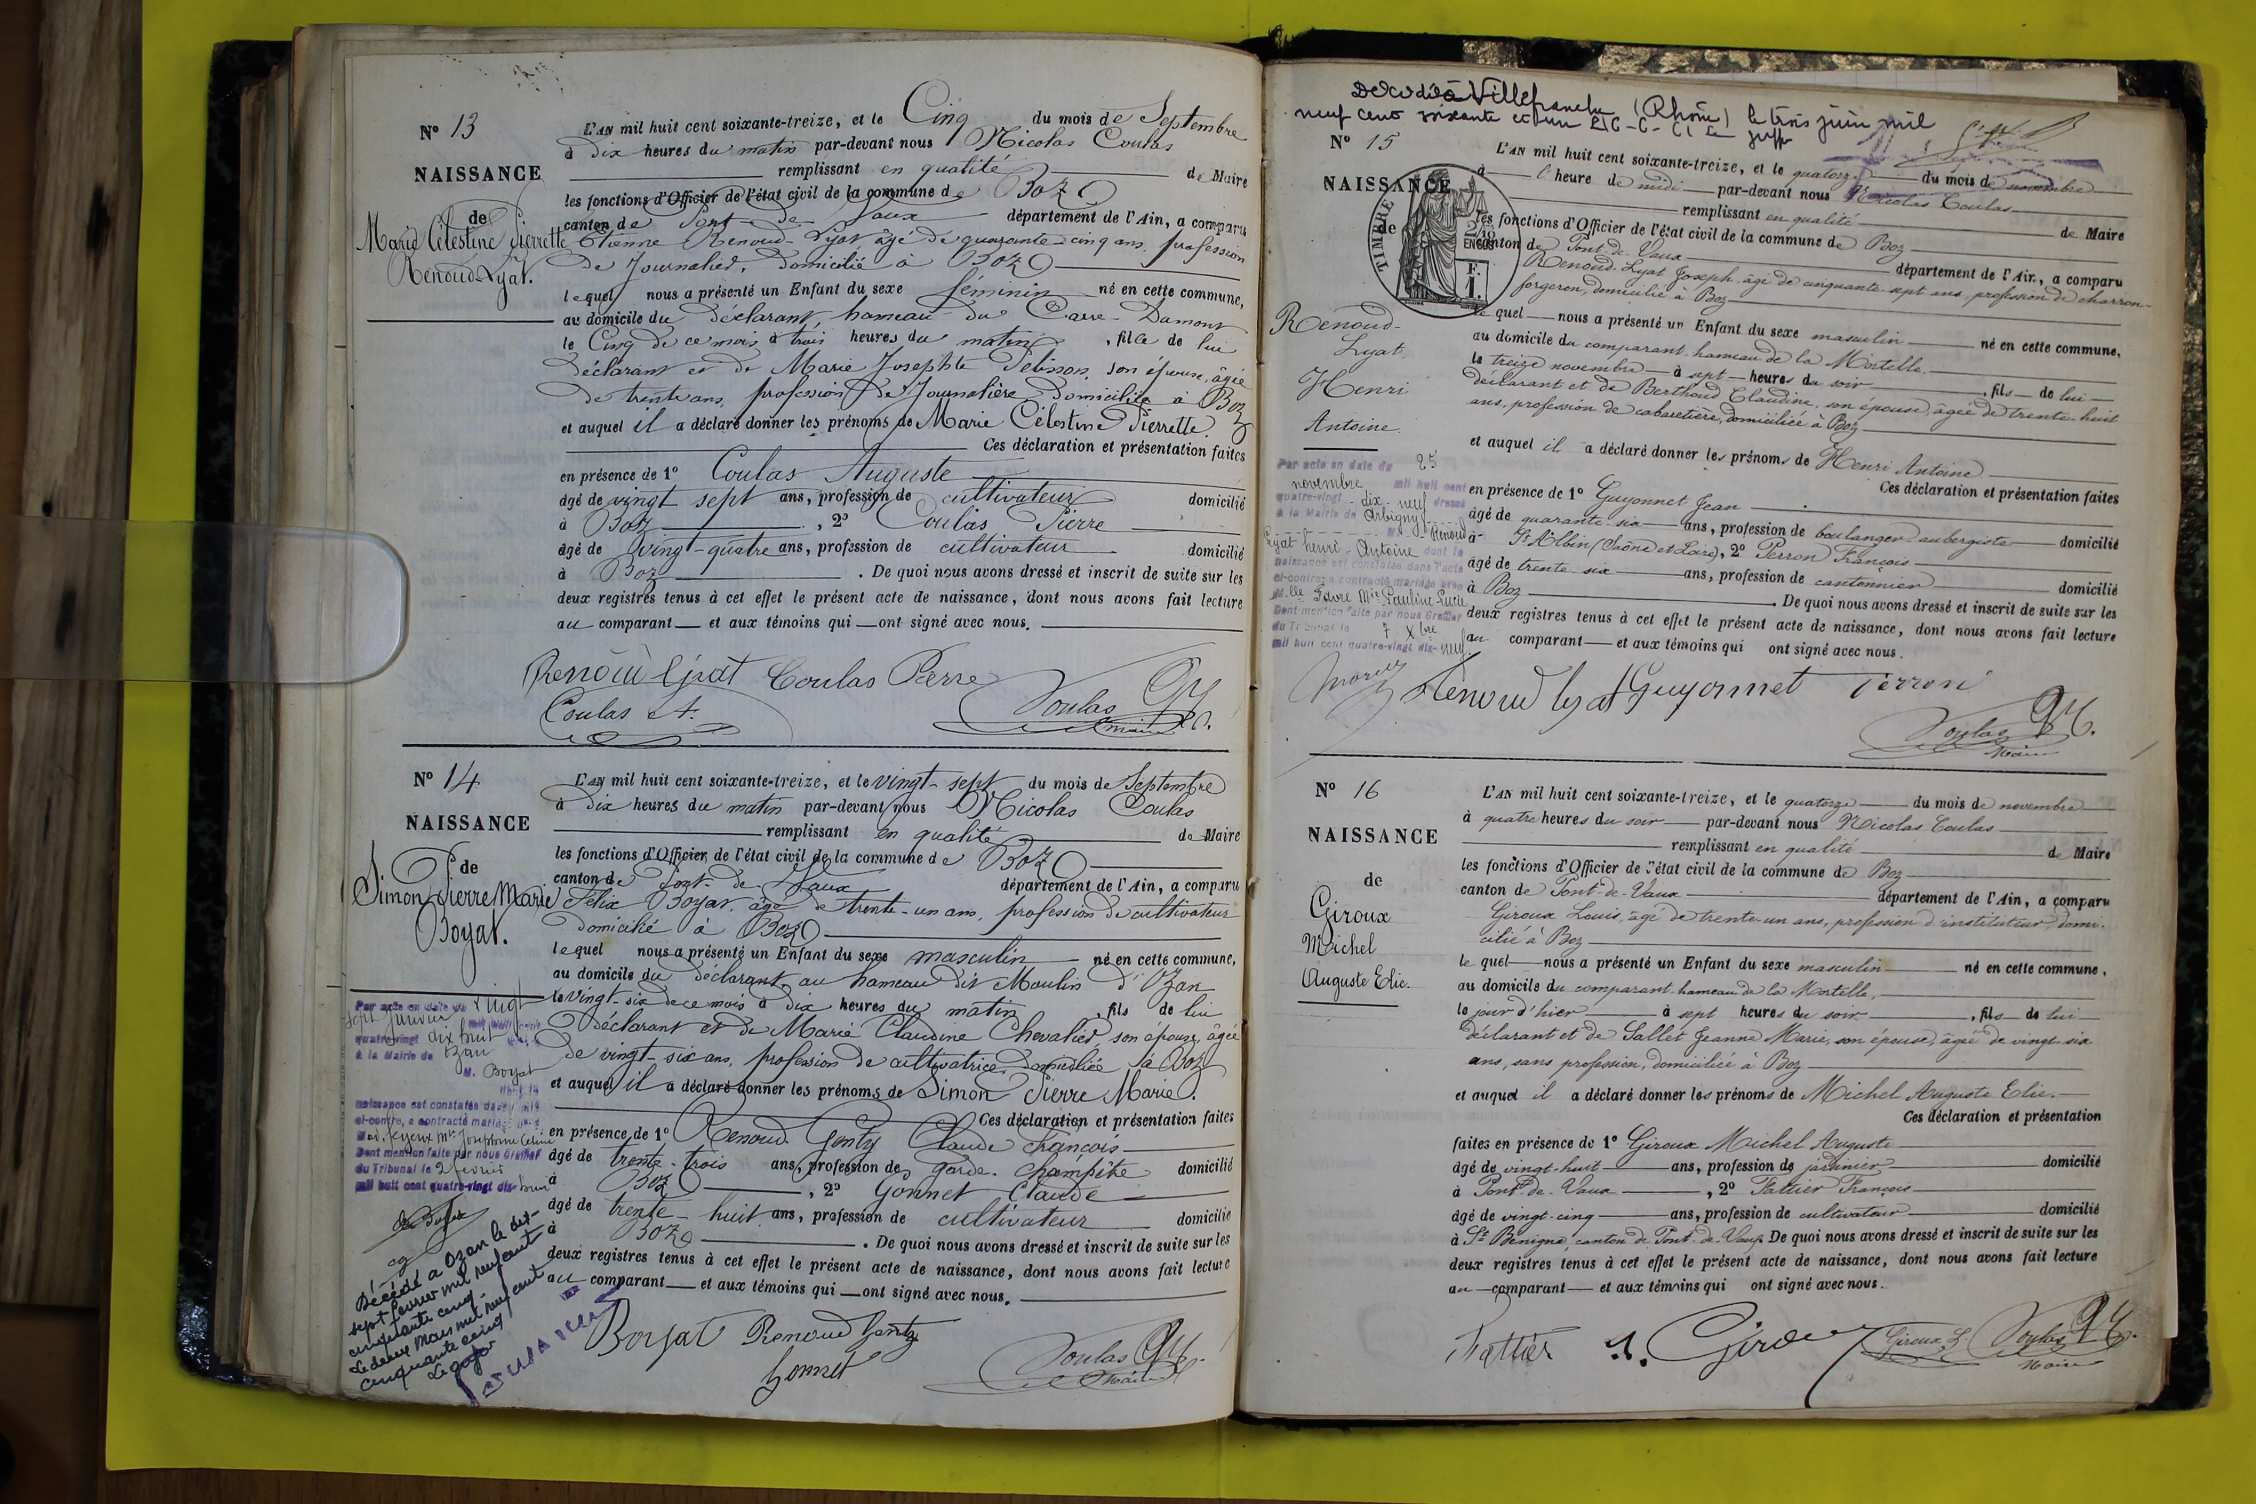 N° 13
NAISSANCE
de
Marie Célestine Pierrette
Renoud-Lyat.
L'AN mil huit cent soixante-treize, et le Cinq du mois de Septembre
à dix heures du matin par-devant nous Nicolas Coulas
remplissant en qualité de Maire
les fonctions d'Officier de l'état civil de la commune de Boz
canton de Pont-de-Vaux département de l'Ain, a comparu
Etienne Renoud-Lyat, âgé de quarante-cinq ans, profession
de Journalier, domicilié à Boz
lequel nous a présenté un Enfant du sexe féminin né en cette commune,
au domicile du déclarant, hameau du Carre-Damont
le Cinq de ce mois à trois heures du matin, fille de lui
déclarant et de Marie Josephte Pelisson, son épouse, âgée
de trente ans, profession de Journalière domiciliée à Boz
et auquel il a déclaré donner les prénoms de Marie Célestine Pierrette.
Ces déclaration et présentation faites
en présence de 1° Coulas Auguste
âgé de vingt sept ans, profession de cultivateur domicilié
à Boz, 2° Coulas Pierre
âgé de vingt-quatre ans, profession de cultivateur domicilié
à Boz. De quoi nous avons dressé et inscrit de suite sur les
deux registres tenus à cet effet le présent acte de naissance, dont nous avons fait lecture
au comparant et aux témoins qui ont signé avec nous.
Renoud Lyat Coulas Pierre
Coulas A. Coulas
maire
N° 14
NAISSANCE
de
Simon Pierre Marie
Boyat.
L'AN mil huit cent soixante-treize, et le vingt-sept du mois de Septembre
à dix heures du matin par-devant nous Nicolas Coulas
remplissant en qualité de Maire
les fonctions d'Officier de l'état civil de la commune de Boz
canton de Pont-de-Vaux département de l'Ain, a comparu
Félix Boyat, âgé de trente-un ans, profession de cultivateur
domicilié à Boz
lequel nous a présenté un Enfant du sexe masculin né en cette commune,
au domicile du déclarant, au hameau dit Moulin d'Ozan
le vingt-six de ce mois à dix heures du matin, fils de lui
déclarant et de Marie Claudine Chevalier, son épouse, âgée
de vingt-six ans, profession de cultivatrice, domiciliée à Boz
et auquel il a déclaré donner les prénoms de Simon Pierre Marie.
Ces déclaration et présentation faites
en présence de 1° Renoud Gently Claude François
âgé de trente-trois ans, profession de garde-champêtre domicilié
à Boz, 2° Gonnet Claude
âgé de trente-huit ans, profession de cultivateur domicilié
à Boz. De quoi nous avons dressé et inscrit de suite sur les
deux registres tenus à cet effet le présent acte de naissance, dont nous avons fait lecture
au comparant et aux témoins qui ont signé avec nous.
Par acte en date du vingt
sept janvier mil huit cent
quatre-vingt dix huit
à la Mairie de Ozan
M. Boyat
dont la
naissance est constatée dans l'acte
ci-contre, a contracté mariage avec
Mad. Feyeux Mie Joséphine Céline
Dont mention faite par nous Greffier
du Tribunal le 2 février
mil huit cent quatre-vingt dix-huit
Décédé à Ozan le dix-
sept février mil neuf cent
cinquante cinq.
Le deux mars mil neuf cent
cinquante cinq
Boyat Renoud Gently
Gonnet Coulas
maire
Decedé à Villefranche (Rhône) le trois juin mil
neuf cent soixante et un
N° 15
NAISSANCE
de
TIMBRE
Renoud-
Lyat
Henri
Antoine
L'AN mil huit cent soixante-treize, et le quatorze du mois de novembre
à l'heure de midi par-devant nous Nicolas Coulas
remplissant en qualité de Maire
les fonctions d'Officier de l'état civil de la commune de Boz
canton de Pont-de-Vaux département de l'Ain, a comparu
Renoud-Lyat Joseph, âgé de cinquante-sept ans, profession de charron-
forgeron, domicilié à Boz
lequel nous a présenté un Enfant du sexe masculin né en cette commune,
au domicile du comparant hameau de la Mortelle
le treize novembre à sept heures du soir, fils de lui
déclarant et de Berthoud Claudine, son épouse, âgée de trente-huit
ans, profession de cabaretière, domiciliée à Boz
et auquel il a déclaré donner les prénoms de Henri Antoine
Ces déclaration et présentation faites
en présence de 1° Guyonnet Jean
âgé de quarante-six ans, profession de boulanger-aubergiste domicilié
à St Albin (Saône et Loire), 2° Perron François
âgé de trente-six ans, profession de cantonnier domicilié
à Boz. De quoi nous avons dressé et inscrit de suite sur les
deux registres tenus à cet effet le présent acte de naissance, dont nous avons fait lecture
au comparant et aux témoins qui ont signé avec nous.
Par acte en date du 25
novembre mil huit cent
quatre-vingt-dix-neuf dressé
à la Mairie de Arbigny
M. Renoud
Lyat Henri-Antoine dont la
naissance est constatée dans l'acte
ci-contre a contracté mariage avec
Melle Favre Mie Pauline Lucie
Dont mention faite par nous Greffier
du Tribunal le 7 Xbre
mil huit cent quatre-vingt dix-neuf
Renoud lyat Guyonnet Perron
Coulas
Maire
N° 16
NAISSANCE
de
Giroux
Michel
Auguste Elie.
L'AN mil huit cent soixante-treize, et le quatorze du mois de novembre
à quatre heures du soir par-devant nous Nicolas Coulas
remplissant en qualité de Maire
les fonctions d'Officier de l'état civil de la commune de Boz
canton de Pont-de-Vaux département de l'Ain, a comparu
Giroux Louis, âgé de trente-un ans, profession d'instituteur, domi-
cilié à Boz
lequel nous a présenté un Enfant du sexe masculin né en cette commune,
au domicile du comparant hameau de la Mortelle,
le jour d'hier à sept heures du soir, fils de lui
déclarant et de Sallet Jeanne Marie, son épouse, âgée de vingt-six
ans, sans profession, domiciliée à Boz
et auquel il a déclaré donner les prénoms de Michel Auguste Elie.
Ces déclaration et présentation
faites en présence de 1° Giroux Michel Auguste
âgé de vingt-huit ans, profession de jardinier domicilié
à Pont-de-Vaux, 2° Fattier François
âgé de vingt-cinq ans, profession de cultivateur domicilié
à St Bénigne, canton de Pont-de-Vaux De quoi nous avons dressé et inscrit de suite sur les
deux registres tenus à cet effet le présent acte de naissance, dont nous avons fait lecture
au comparant et aux témoins qui ont signé avec nous.
Fattier Giroux Giroux L. Coulas
Maire